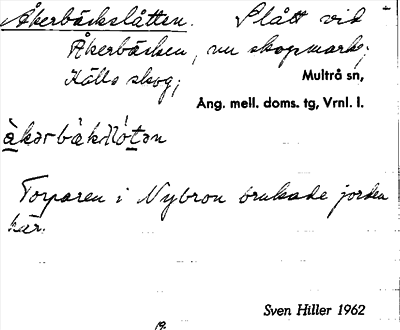 Åkerbäckslåtten. Slått vid
Åkerbäcken, nu skogsmark;
Källs skog; Multrå sn,
Ång. mell. doms. tg, Vrnl. l.
Torparen i Nybron brukade jorden
här.
Sven Hiller 1962
19.